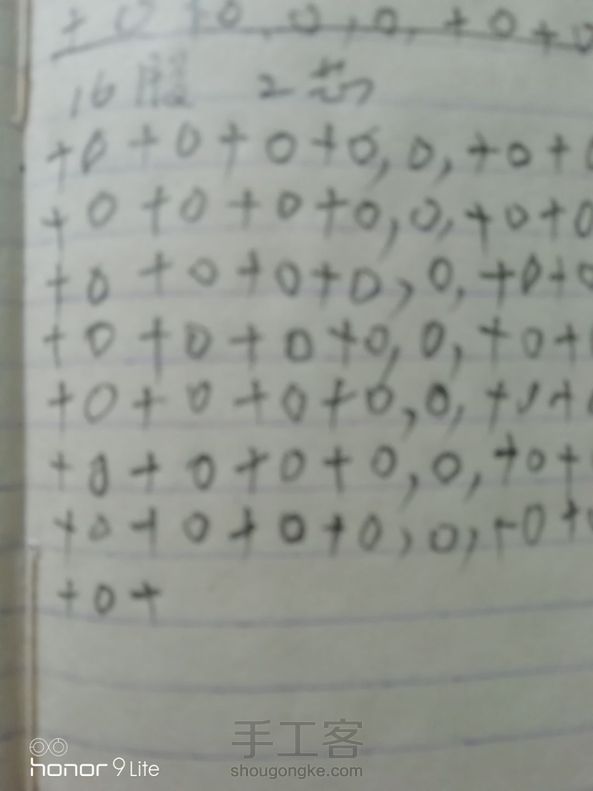 +0+0,0,0,+0+0
16股 2芯
+0+0+0+0,0,+0+0
+0+0+0+0,0,+0+0
+0+0+0+0,0,+0+0
+0+0+0+0,0,+0+
+0+0+0+0,0,+0+0
+0+0+0+0,0,+0+
+0+0+0+0,0,+0+0
+0+
手工客
honor 9 Lite
shougongke.com